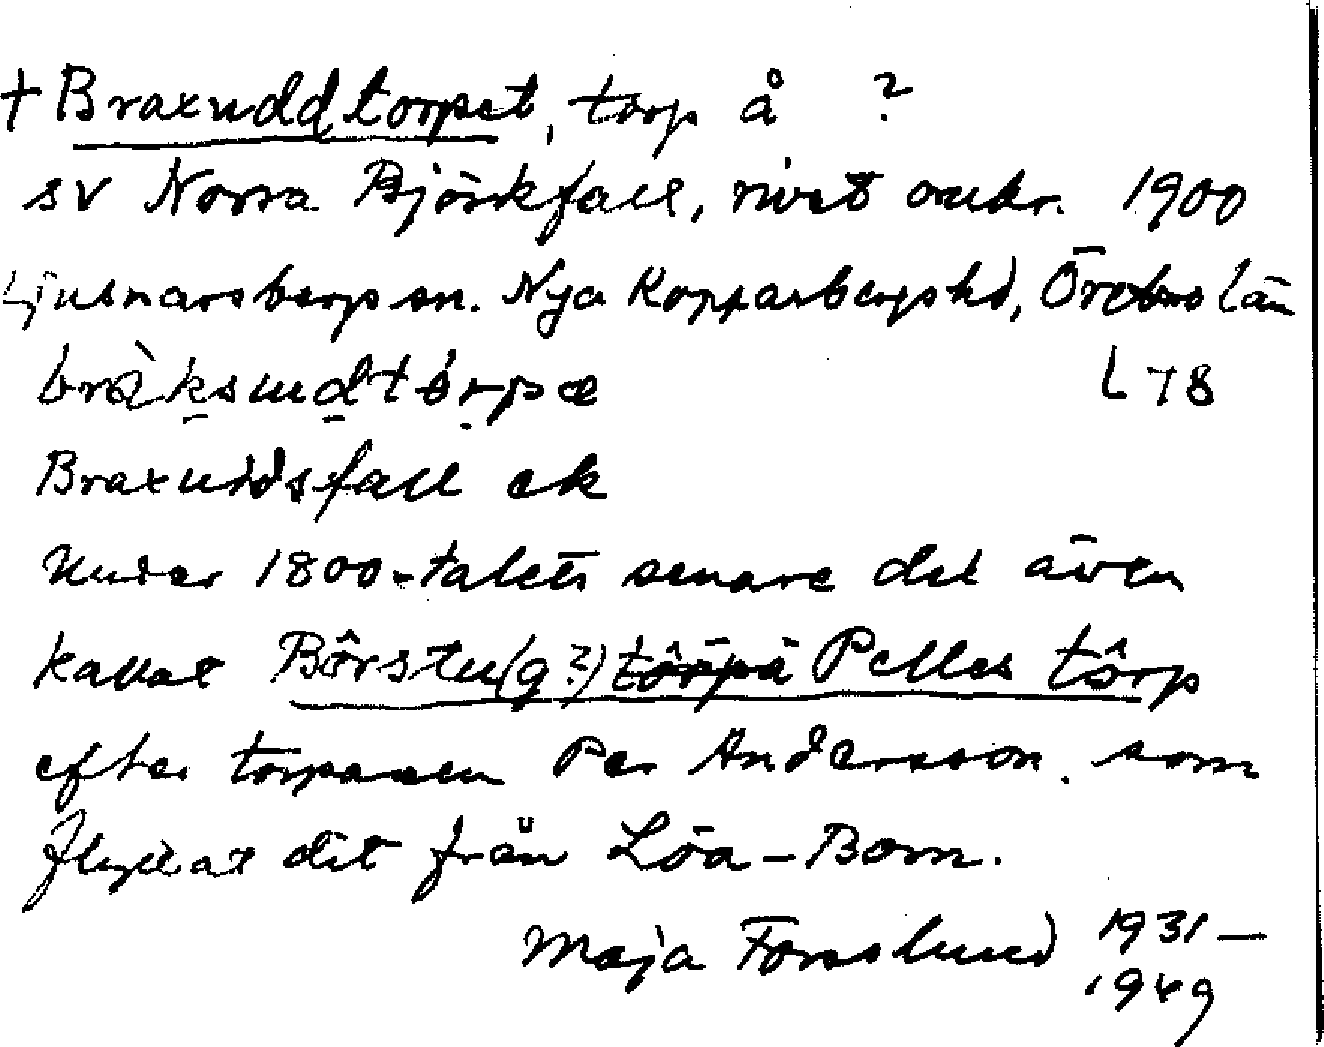 + Braxuddtorpet, torp å ?
sv Norra Björkfall, rivet omkr. 1900
Ljusnarsbergs sn. Nya Kopparbergs hd, Örebro län
bràksudtörpe L 78
Braxuddsfall ek
Under 1800-talets senare del även
kallat Bôrstu(g?) törpä Pelles tôrp
efter torparen Per Andersson som
flyttat dit från Löa-Born.
Maja Forslund 1931-
1949